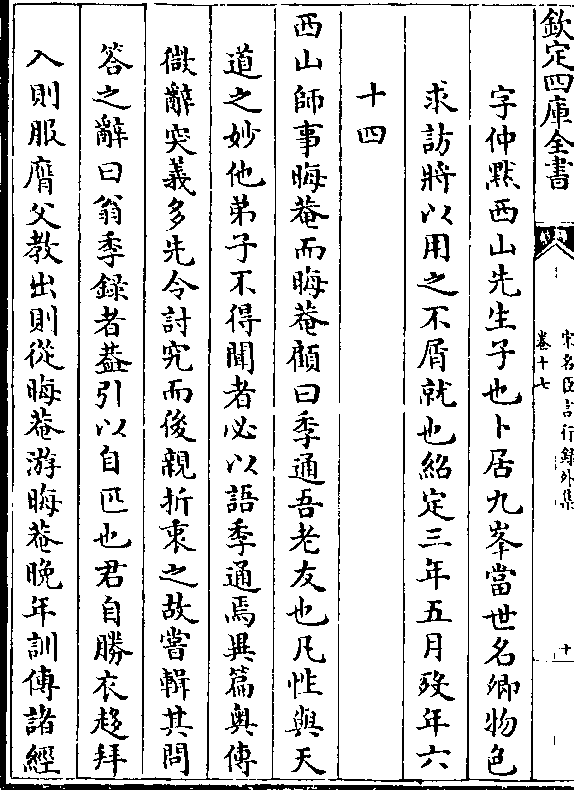 欽定四庫全書
宋名臣言行錄外集
卷十七
十
字仲黙西山先生子也卜居九峯當世名卿物色
求訪將以用之不屑就也紹定三年五月歿年六
十四
西山師事晦菴而晦菴顧曰季通吾老友也凡性與天
道之妙他弟子不得聞者必以語季通焉異篇奥傳
微辭突義多先令討究而後親折衷之故嘗輯其問
答之辭曰翁季録者葢引以自匹也君自勝衣趍拜
入則服膺父教出則從晦菴游晦菴晚年訓傳諸經